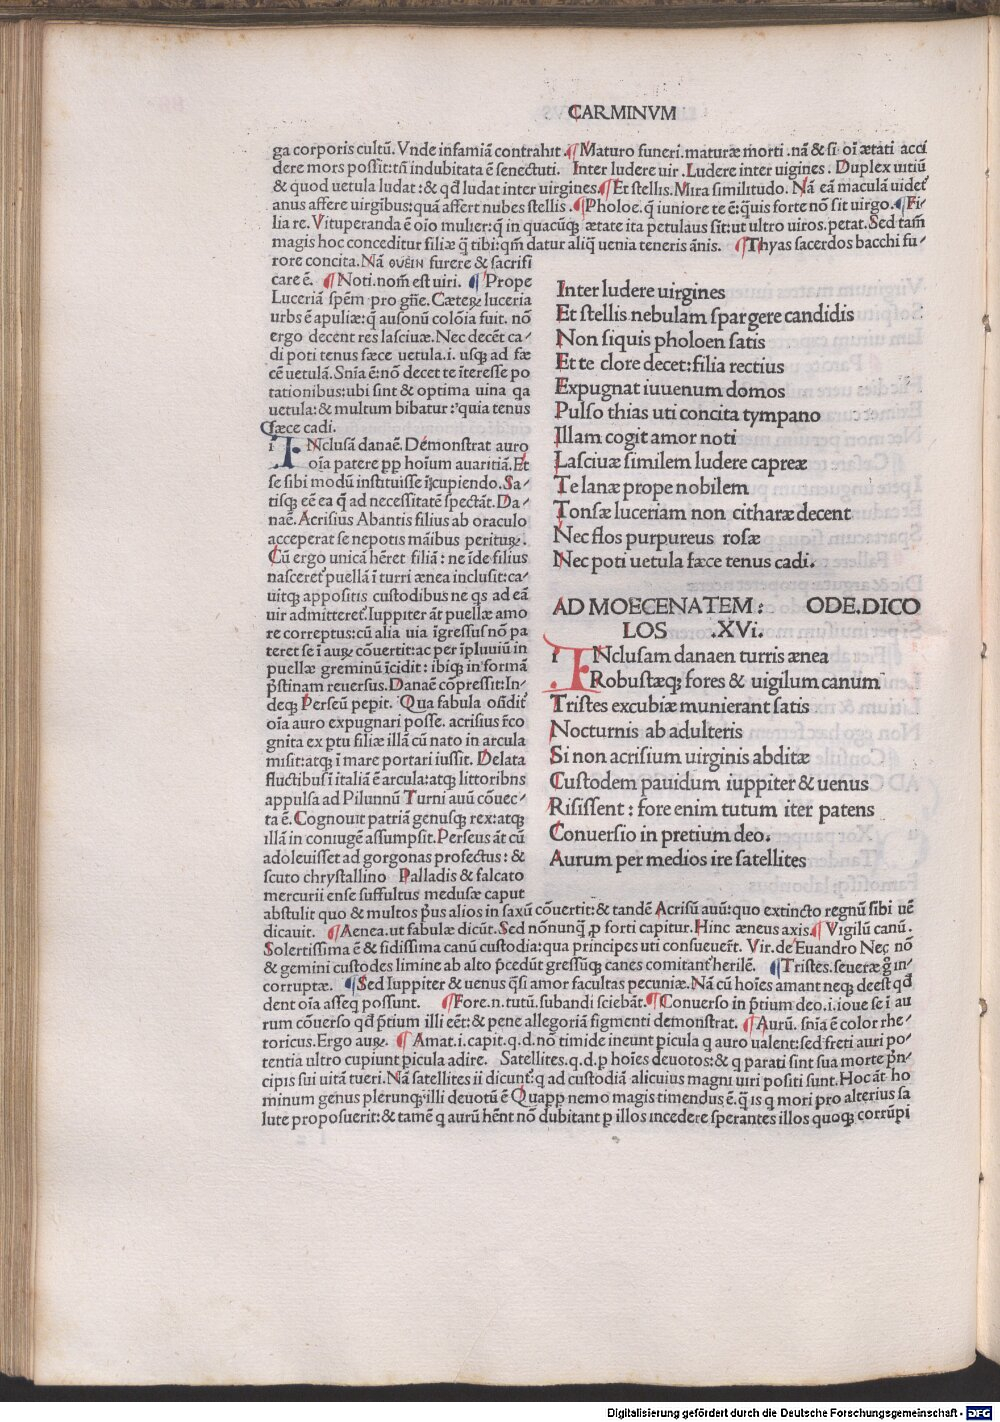 CARMINVM
ga corporis cultū. Vnde infamiā contrahit. ¶ Maturo funeri. maturæ morti .nā & si oī ætati acci
dere mors possit: tñ indubitata ē senectuti. Inter ludere uir. Ludere inter uigines. Duplex uitiū
& quod uetula ludat: & qđ ludat inter uirgines. ¶ Et stellis. Mira similitudo. Nā eā maculā uidet᷒
anus affere uirgibus: quā affert nubes stellis. ¶ Pholoe. q̄ iuniore te ē: q̄uis forte nō sit uirgo. ¶ Fi-
lia re. Vituperanda ē oīo mulier: q̄ in quacūq; ætate ita petulaus sit: ut ultro uiros. petat. Sed tam̄
magis hoc conceditur filiæ q̄ tibi: qm̄ datur aliq̄ uenia teneris ānis. ¶ Thyas sacerdos bacchi fu-
rore concita. Nā ΘΥΕΙΝ furere & sacrifi
care ē. ¶ Noti. nom̄ est uiri. ¶ Prope
Luceriā spēm pro gn̄e. Cæteꝝ luceria
urbs ē apuliæ: q̄ ausonū colōia fuit. nō
ergo decent res lasciuæ. Nec decēt ca-
di poti tenus fæce uetula. i. usq; ad fæ
cē uetulā. Snīa ē: nō decet te īteresse po
tationibus: ubi sint & optima uina qa
uetula: & multum bibatur: quia tenus
fæce cadi.
i INclusā danaē. Demonstrat auro
oīa patere pp hoīum auaritiā. Et
se sibi modū instituisse ī cupiendo. Sa-
tisq; eē ea q̄ ad necessitatē spectāt. Da-
naē. Acrisius Abantis filius ab oraculo
acceperat se nepotis māibus perituꝝ.
Cū ergo unicā hēret filiā: ne īde filius
nasceret᷒ puellā ī turri ænea inclusit: ca-
uitq; appositis custodibus ne qs ad eā
uir admitteret᷒. Iuppiter āt puellæ amo
re correptus: cū alia uia īgressus nō pa
teret se ī auꝝ cōuertit: ac per īpluuiū in
puellæ greminū īcidit: ibiq; in formā
p̄stinam reuersus. Danaē cōpressit: In-
deq; Perseū pepit. Qua fabula oñdit
oīa auro expugnari posse. acrisius r̄co
gnita ex ptu filiæ illā cū nato in arcula
misit: atq; ī mare portari iussit. Delata
fluctibus ī italiā ē arcula: atq; littoribns
appulsa ad Pilunnū Turni auū cōuec-
ta ē. Cognouit patriā genusq; rex: atq;
illā in coniugē assumpsit. Perseus āt cū
adoleuisset ad gorgonas profectus: &
scuto chrystallino Palladis & falcato
mercurii ense suffultus medusæ caput
abstulit quo & multos p̄us alios in saxū cōuertit: & tandē Acrisū auū: quo extincto regnū sibi uē
dicauit. ¶ Aenea. ut fabulæ dicūt. Sed nōnunq̄ ꝑ forti capitur. Hinc æneus axis. ¶ Vigilū canū.
Solertissima ē & fidissima canū custodia: qua principes uti consueuer̄t. Vir. de Euandro Nec nō
& gemini custodes limine ab alto p̄cedūt gressūq; canes comitant᷒ herilē. ¶ Tristes. seueræ g̊ in-
corruptæ. ¶ Sed Iuppiter & uenus q̄si amor facultas pecuniæ. Nā cū hoīes amant neq; deest qđ
dent oīa asseq possunt. ¶ Fore .n. tutū. subandi sciebāt. ¶ Conuerso in p̄tium deo. i. ioue se ī au
rum cōuerso qđ p̄tium illi eēt: & pene allegoriā figmenti demonstrat. ¶ Aurū. snīa ē color rhe-
toricus. Ergo auꝝ. ¶ Amat. i. capit. q.d. nō timide ineunt picula q auro ualent: sed freti auri po-
tentia ultro cupiunt picula adire. Satellites. q.d. p hoīes deuotos: & q parati sint sua morte p̄n-
cipis sui uitā tueri. Nā satellites ii dicunt᷒: q ad custodiā alicuius magni uiri positi sunt. Hoc āt ho
minum genus plerunq; illi deuotū ē Quapp nemo magis timendus ē. q̄ is q mori pro alterius sa
lute proposuerit: & tamē q aurū hēnt nō dubitant p illos incedere sperantes illos quoq; corrūpi
Inter ludere uirgines
Et stellis nebulam spargere candidis
Non siquis pholoen satis
Et te clore decet: filia rectius
Expugnat iuuenum domos
Pulso thias uti concita tympano
Illam cogit amor noti
Lasciuæ similem ludere capreæ
Te lanæ prope nobilem
Tonsæ luceriam non citharæ decent
Nec flos purpureus rosæ
Nec poti uetula fæce tenus cadi.
AD MOECENATEM: ODE. DICO
LOS .XVi.
i INclusam danaen turris ænea
Robustæq; fores & uigilum canum
Tristes excubiæ munierant satis
Nocturnis ab adulteris
Si non acrisium uirginis abditæ
Custodem pauidum iuppiter & uenus
Risissent: fore enim tutum iter patens
Conuersio in pretium deo.
Aurum per medios ire satellites
Digitalisierung gefördert durch die Deutsche Forschungsgemeinschaft - DFG